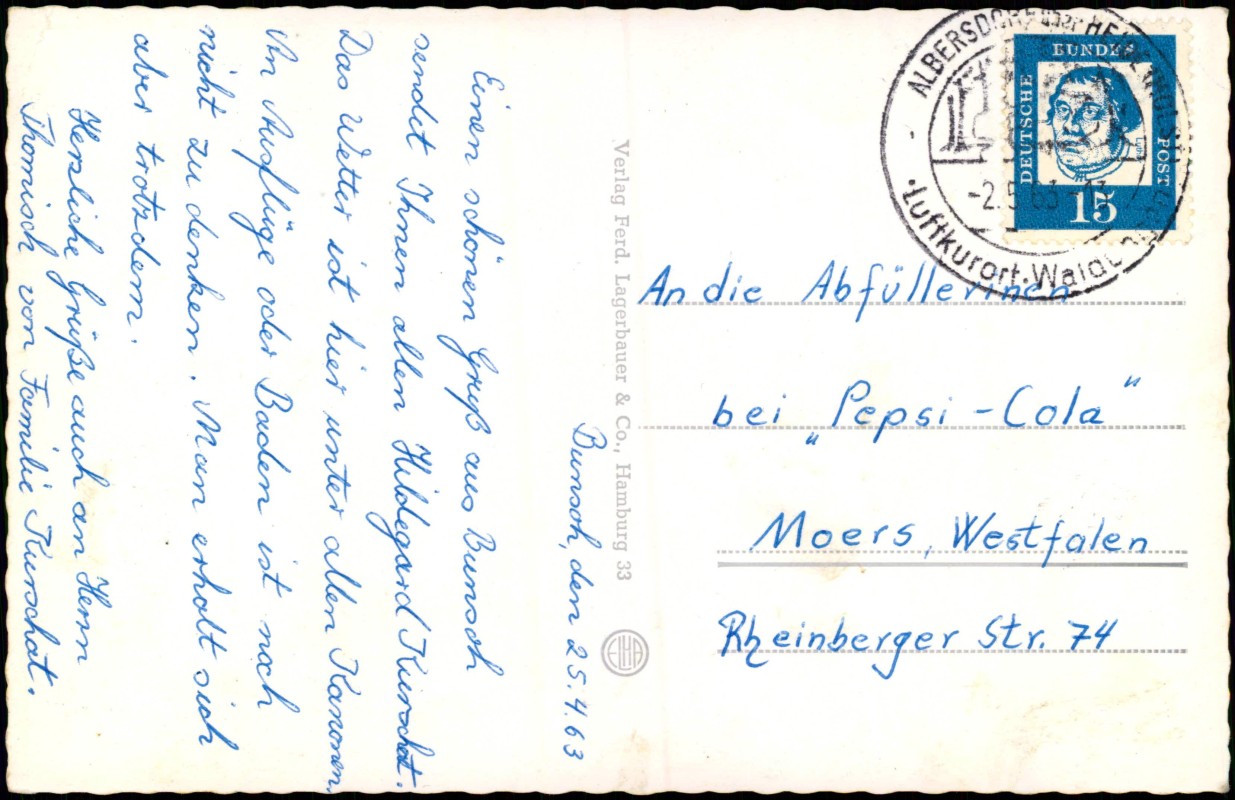 Bunsoh, den 25.4.63
Einen schönen Gruß aus Bunsoh
sendet Ihnen allen Hildegard Kurschat.
Das Wetter ist hier unter allen Kanonen.
An Ausflüge oder Baden ist noch
nicht zu denken. Man erholt sich
aber trotzdem.
Herzliche Grüße auch an Herrn
Thomisch von Familie Kurschat.
Verlag Ferd. Lagerbauer & Co., Hamburg 33
ALBERSDORF
Luftkurort
-2.5.63-13
DEUTSCHE
BUNDES
POST
15
An die Abfüllerinen
bei „Pepsi-Cola"
Moers, Westfalen
Rheinberger Str. 74